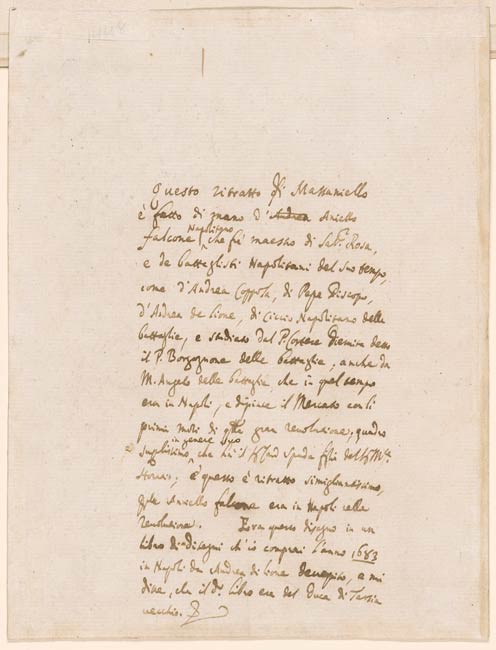 Questo ritratto di Massaniello
è fatto di mano d'Andrea Aniello
falcone Napolitano che fù maestro di Salr. Rosa,
e de battaglisti Napolitani del suo tempo,
come d'Andrea Coppola, di Pepe Piscopo,
d'Andrea de Lione, di Ciccio Napolitano delle
battaglie, e studiato dal P. Cortese Giesuita detto
il P. Borgognone delle battaglie, anche da
M. Angelo delle battaglie che in quel tempo
era in Napoli, e dipinse il Mercato con li
primi moti di qlla gran revolutione, quadro
in genere suo, che hà il spada
è questo è ritratto simigliantissimo,
Aniello falcone era in Napoli nella
revolutione. Era questo disegno in un
libro di disegni ch'io comprai l'anno 1683
in Napoli da Andrea di Lione, e mi
disse, che il do. libro era del Duca di
vecchio.